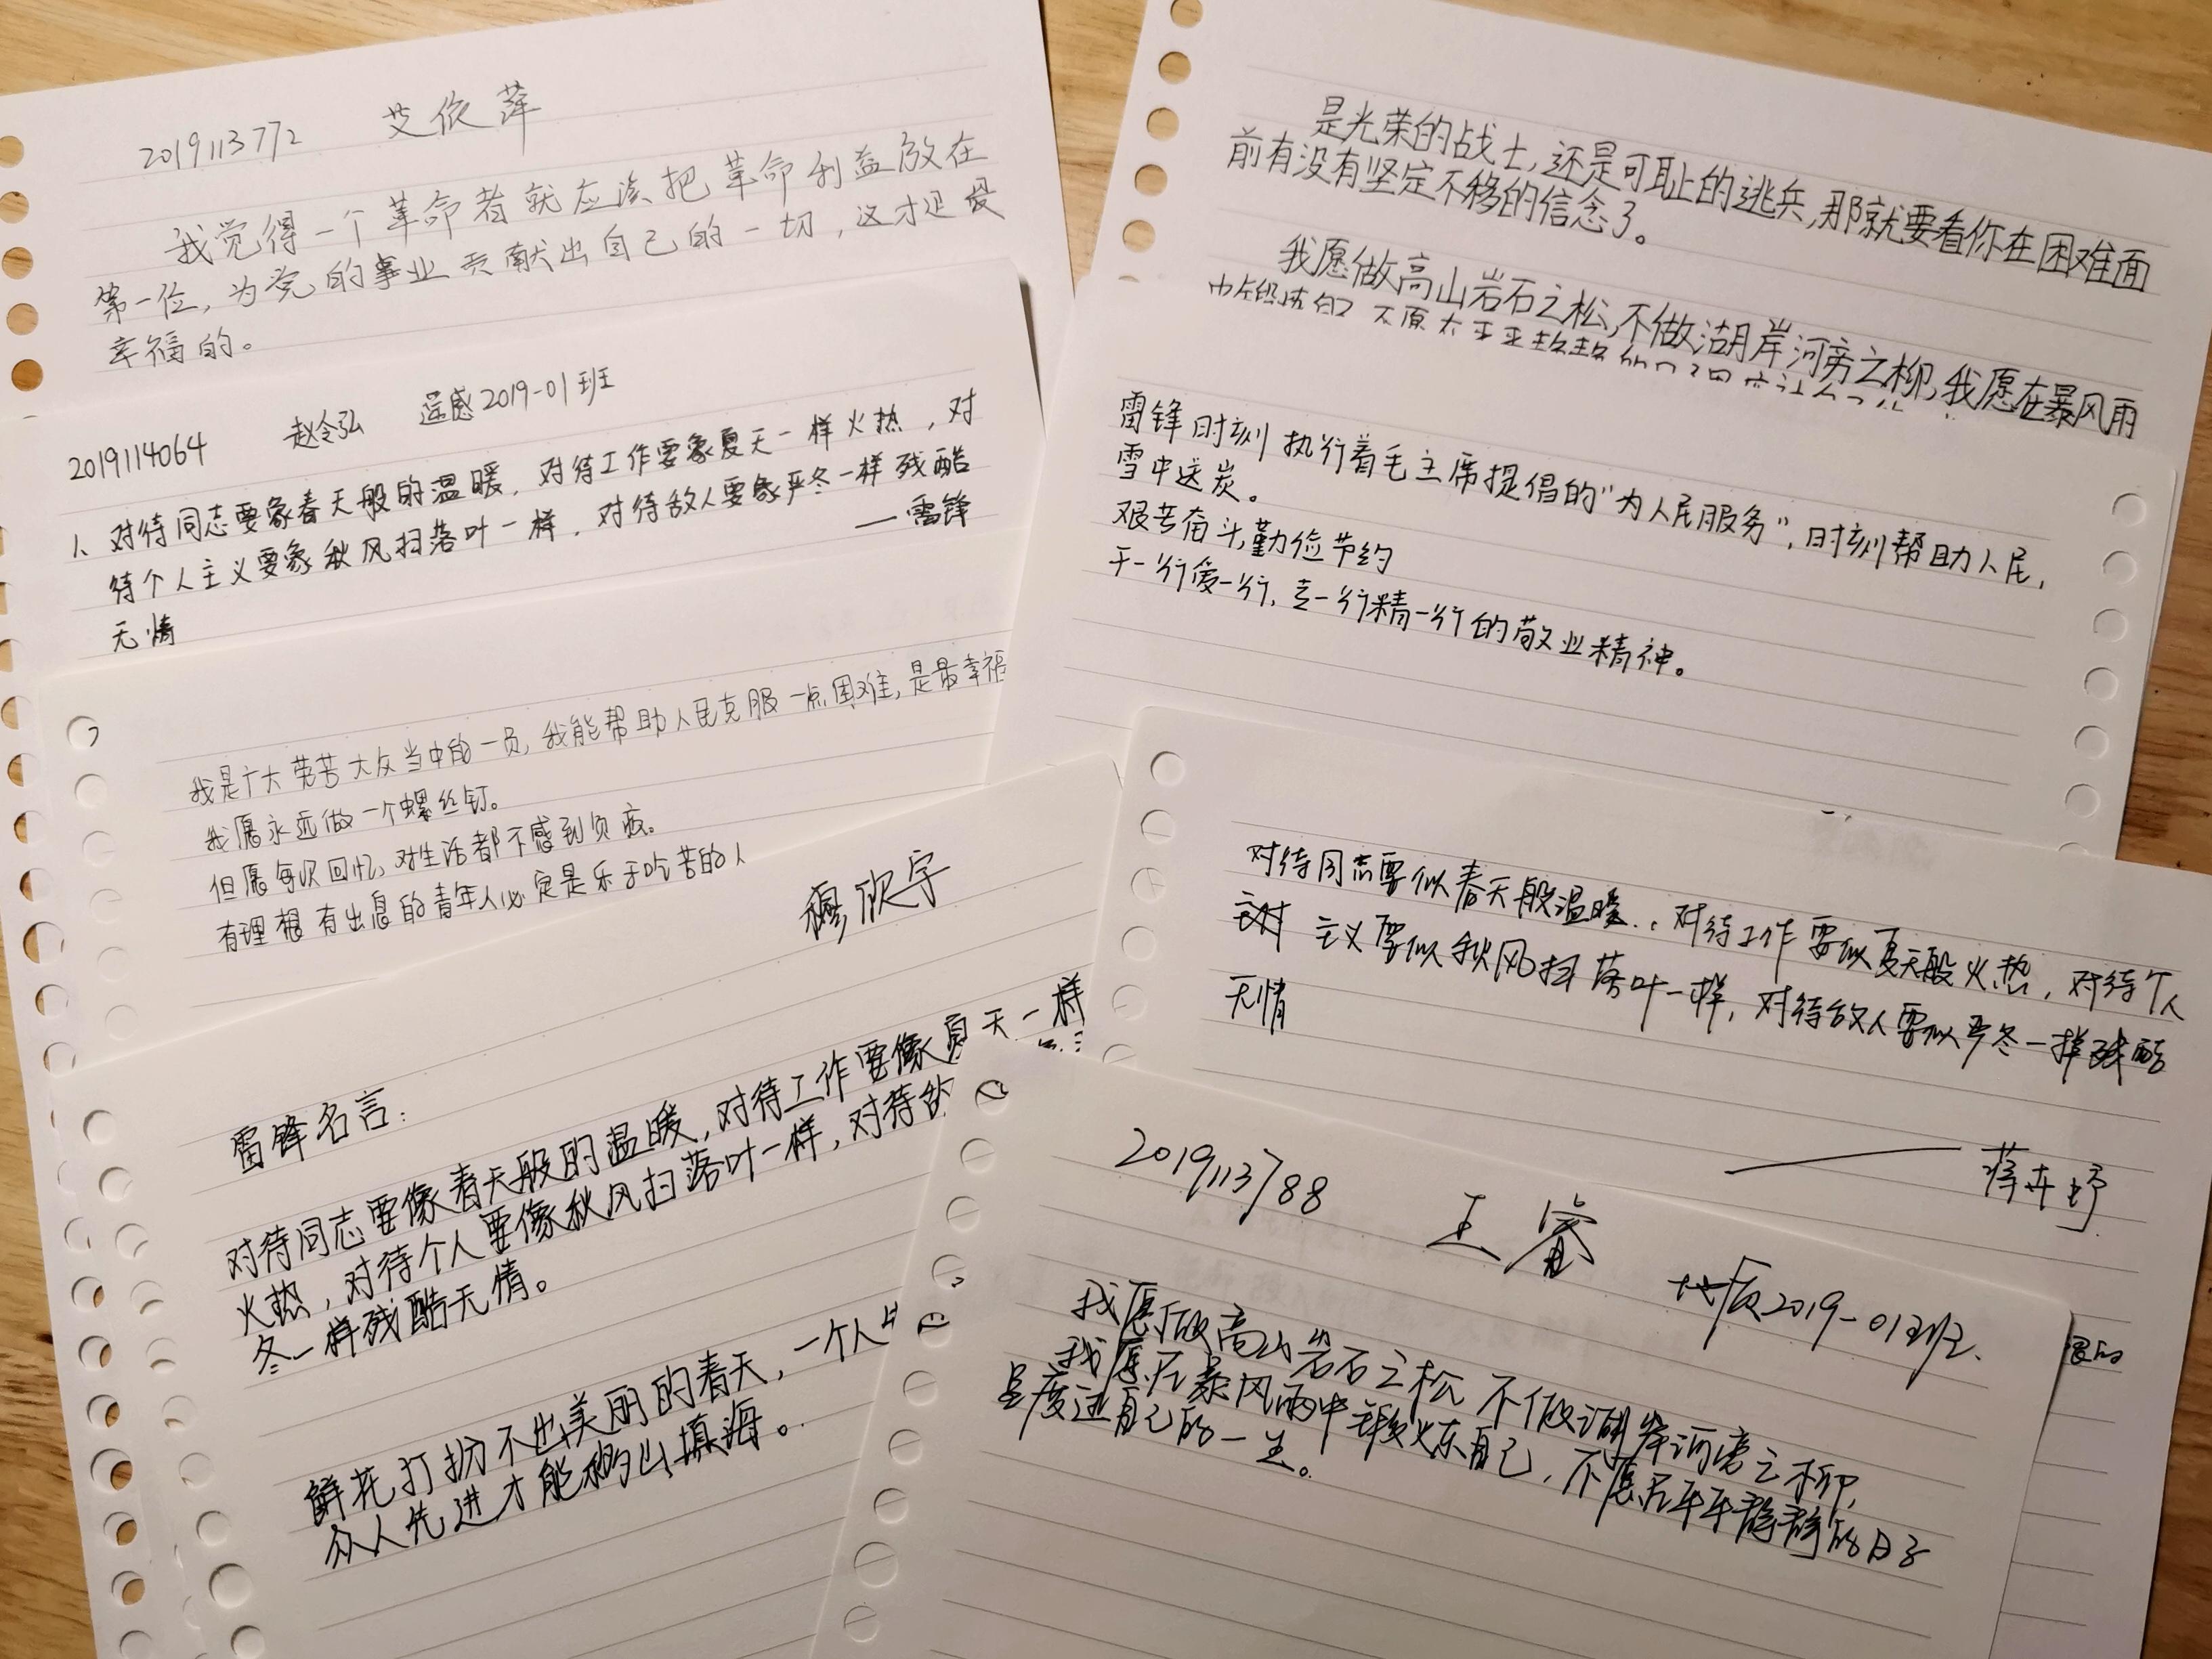 2019113772 艾依萍
我觉得一个革命者就应该把革命利益放在
第一位,为党的事业贡献出自己的一切,这才是最
幸福的。
2019114064 赵令弘 遥感2019-01班
1、对待同志要象春天般的温暖,对待工作要象夏天一样火热,对
待个人主义要象秋风扫落叶一样,对待敌人要象严冬一样残酷
无情
——雷锋
我是广大劳苦大众当中的一员,我能帮助人民克服一点困难,是最幸福
我愿永远做一个螺丝钉。
但愿每次回忆,对生活都不感到负疚。
有理想有出息的青年人必定是乐于吃苦的人
穆欣宇
雷锋名言:
对待同志要像春天般的温暖,对待工作要像夏天一样
火热,对待个人要像秋风扫落叶一样,对待敌
冬一样残酷无情。
鲜花打扮不出美丽的春天,一个人
众人先进才能移山填海。
是光荣的战士,还是可耻的逃兵,那就要看你在困难面
前有没有坚定不移的信念了。
我愿做高山岩石之松,不做湖岸河旁之柳,我愿在暴风雨
雷锋时刻执行着毛主席提倡的“为人民服务”,时刻帮助人民,
雪中送炭。
艰苦奋斗,勤俭节约
干一行爱一行,专一行精一行的敬业精神。
对待同志要似春天般温暖,对待工作要似夏天般火热,对待个人
主义要似秋风扫落叶一样,对待敌人要似严冬一样残酷
无情
2019113788 王睿 地质2019-01班
我愿做高山岩石之松 不做湖岸河旁之柳,
我愿在暴风雨中锻炼自己,不愿在平平静静的日子
里度过自己的一生。